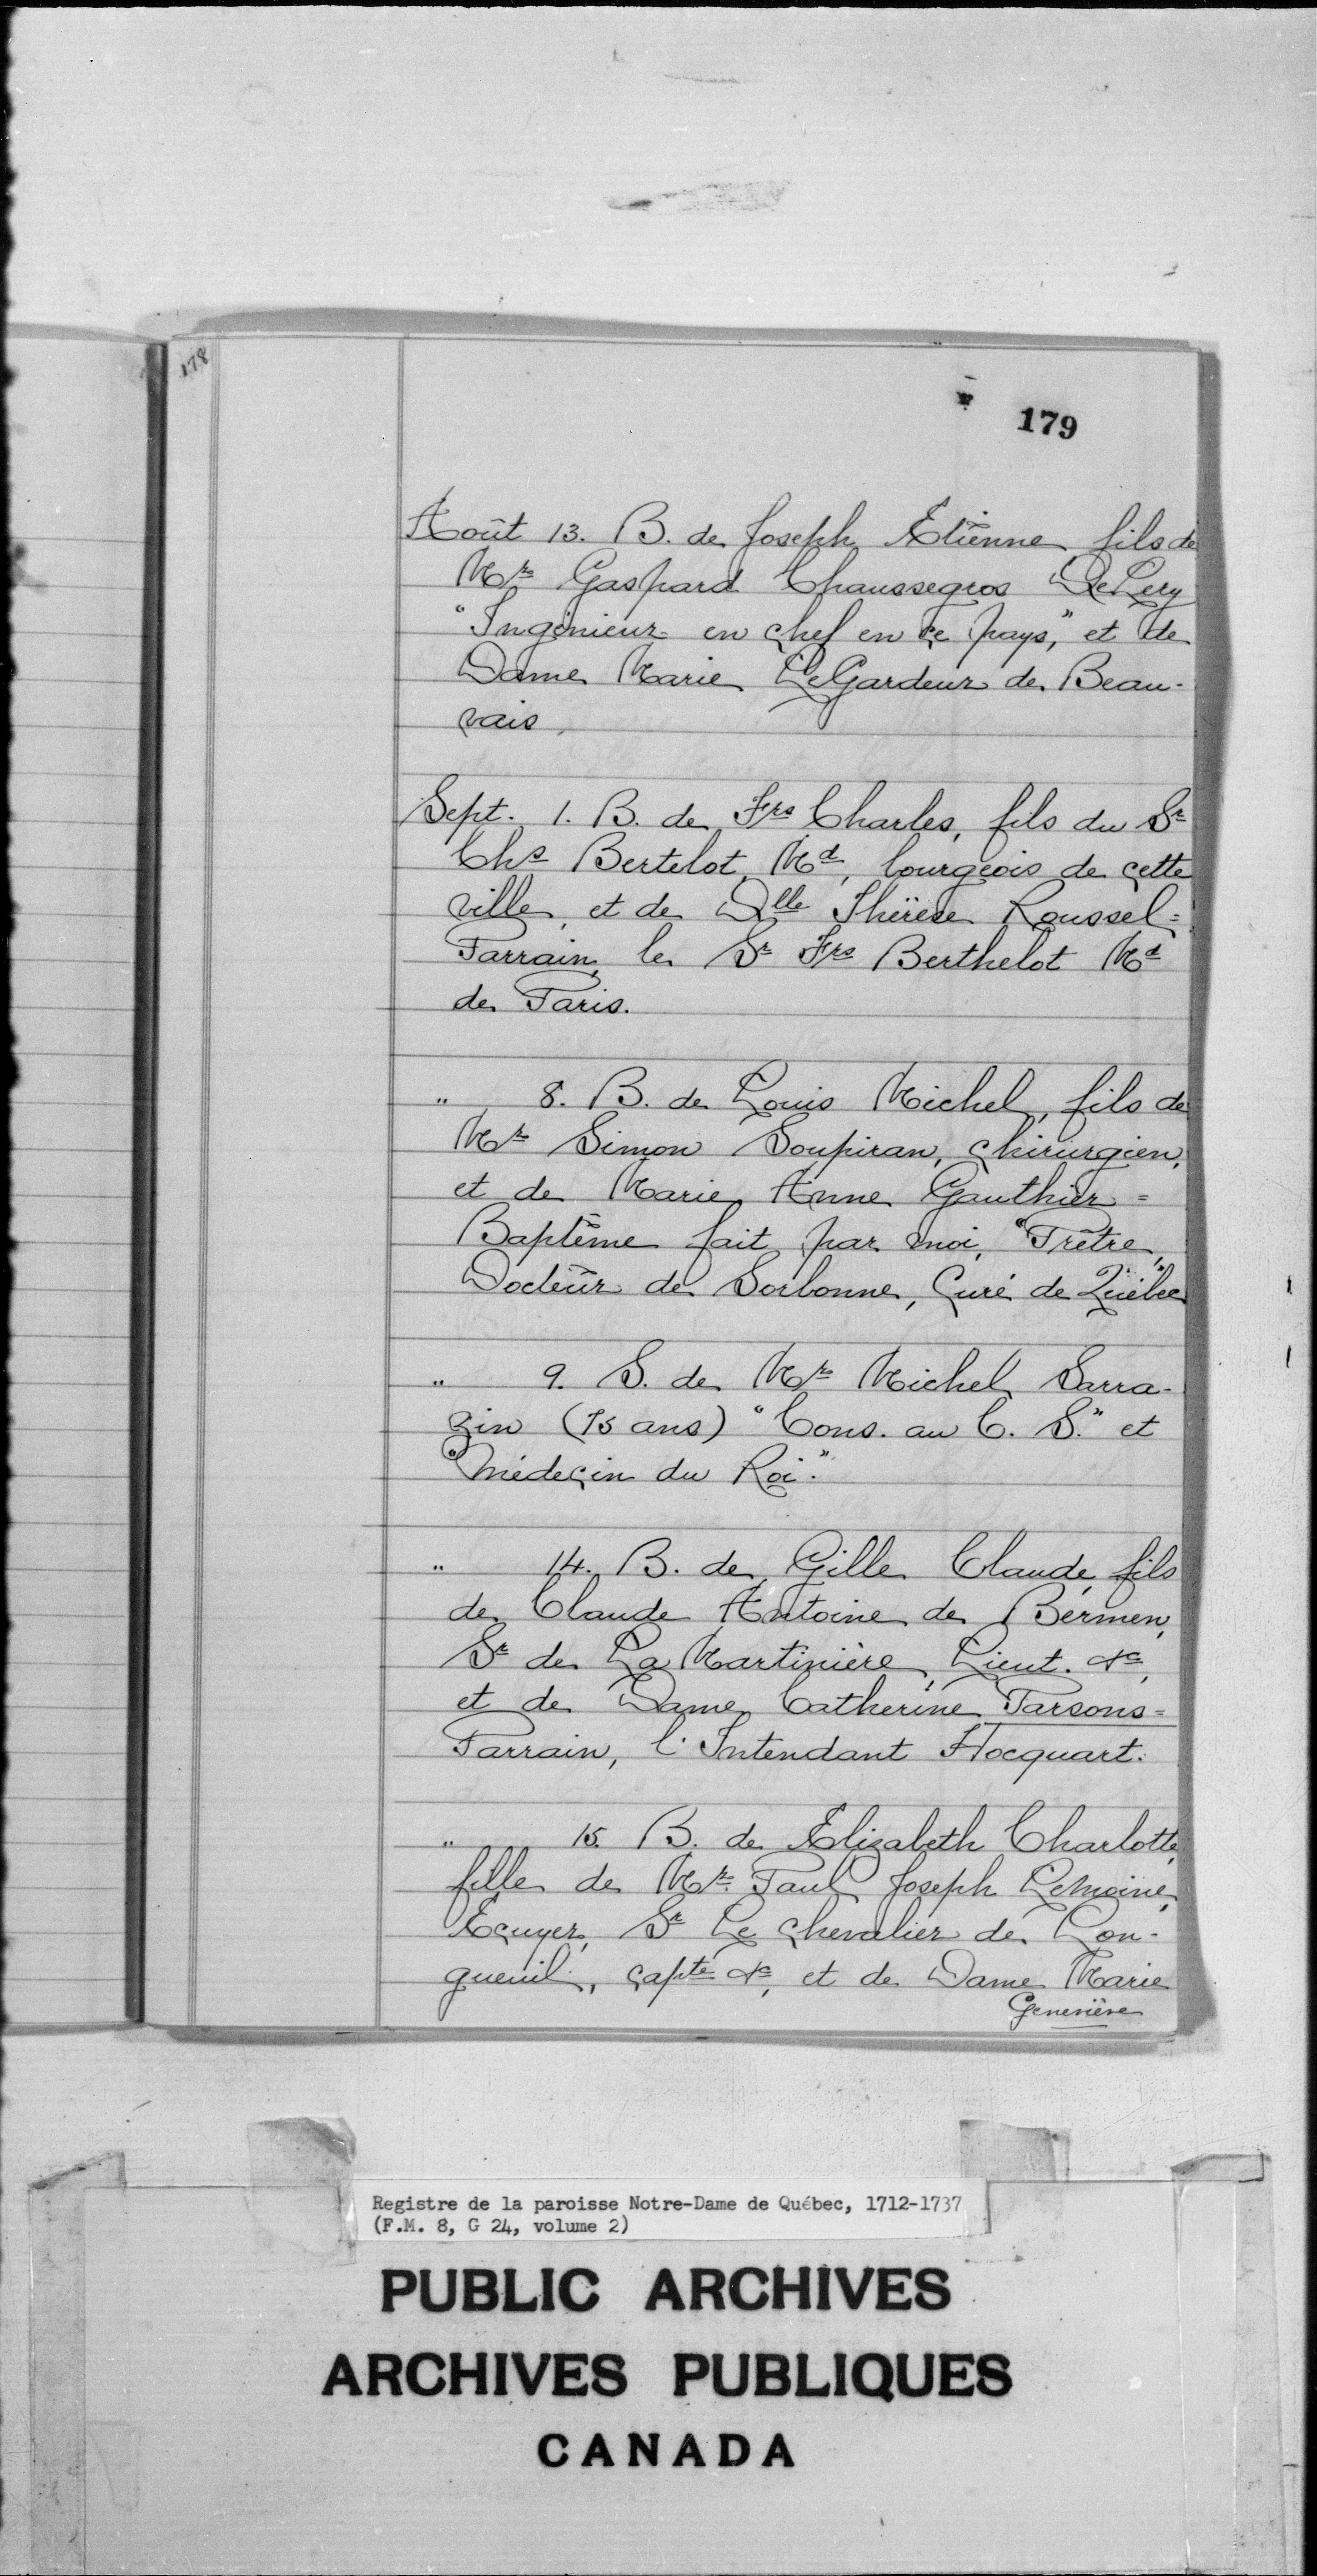 178
179
Août 13. B. de Joseph Etienne, fils de
Mr Gaspard Chaussegros DeLery
"Ingénieur en chef en ce pays," et de
Dame Marie LeGardeur de Beau-
vais.
Sept. 1. B. de Frs Charles, fils du Sr
Chs Bertelot, Md, bourgeois de cette
ville, et de Dlle Thérèse Roussel =
Parrain, le Sr Frs Berthelot Md
de Paris.
" 8. B. de Louis Michel, fils de
Mr Simon Soupiran, chirurgien,
et de Marie Anne Gauthier =
Baptême fait par moi, "Prêtre,
Docteur de Sorbonne, Curé de Québec"
" 9. S. de Mr Michel Sarra-
zin (75 ans) "Cons. au C. S." et
"médecin du Roi."
" 14. B. de Gille Claude, fils
de Claude Antoine de Bérmen,
Sr de La Martinière, Lieut. &c,
et de Dame Catherine Parsons =
Parrain, l'Intendant Hocquart.
" 15. B. de Elizabeth Charlotte,
fille de Mr Paul Joseph Lemoine,
Ecuyer, Sr Le chevalier de Lon-
gueuil, capte &c, et de Dame Marie
Geneviève
Registre de la paroisse Notre-Dame de Québec, 1712-1737
(F.M. 8, G 24, volume 2)
PUBLIC ARCHIVES
ARCHIVES PUBLIQUES
CANADA